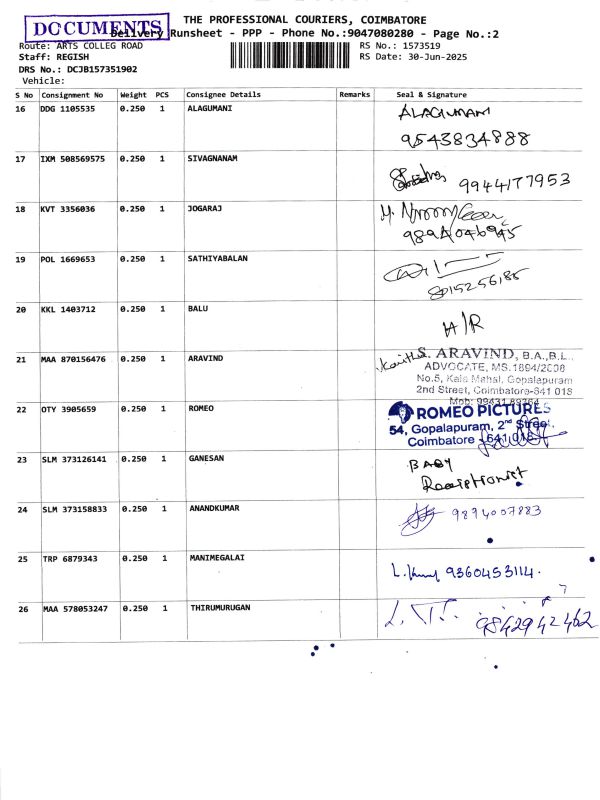 THE PROFESSIONAL COURIERS, COIMBATORE
DOCUMENTS
Delivery Runsheet - PPP - Phone No.:9047080280 - Page No.:2
Route: ARTS COLLEG ROAD
RS No.: 1573519
Staff: REGISH
RS Date: 30-Jun-2025
DRS No.: DCJB157351902
Vehicle:
S No Consignment No Weight PCS Consignee Details Remarks Seal & Signature
16 DDG 1105535 0.250 1 ALAGUMANI
9543834888
17 IXM 508569575 0.250 1 SIVAGNANAM
9944177953
18 KVT 3356036 0.250 1 JOGARAJ
19 POL 1669653 0.250 1 SATHIYABALAN
20 KKL 1403712 0.250 1 BALU
H/R
21 MAA 870156476 0.250 1 ARAVIND
S. ARAVIND, B.A.,B.L.,
ADVOCATE, MS.1894/2008
No.5, Kals Mahal, Gopalapuram
2nd Street, Coimbatore-641 018
Mob: 99431 89764
22 OTY 3905659 0.250 1 ROMEO
ROMEO PICTURES
54, Gopalapuram, 2nd Street,
Coimbatore - 641 018
23 SLM 373126141 0.250 1 GANESAN
BABY
24 SLM 373158833 0.250 1 ANANDKUMAR
9894007883
25 TRP 6879343 0.250 1 MANIMEGALAI
9360453114.
26 MAA 578053247 0.250 1 THIRUMURUGAN
9842942462